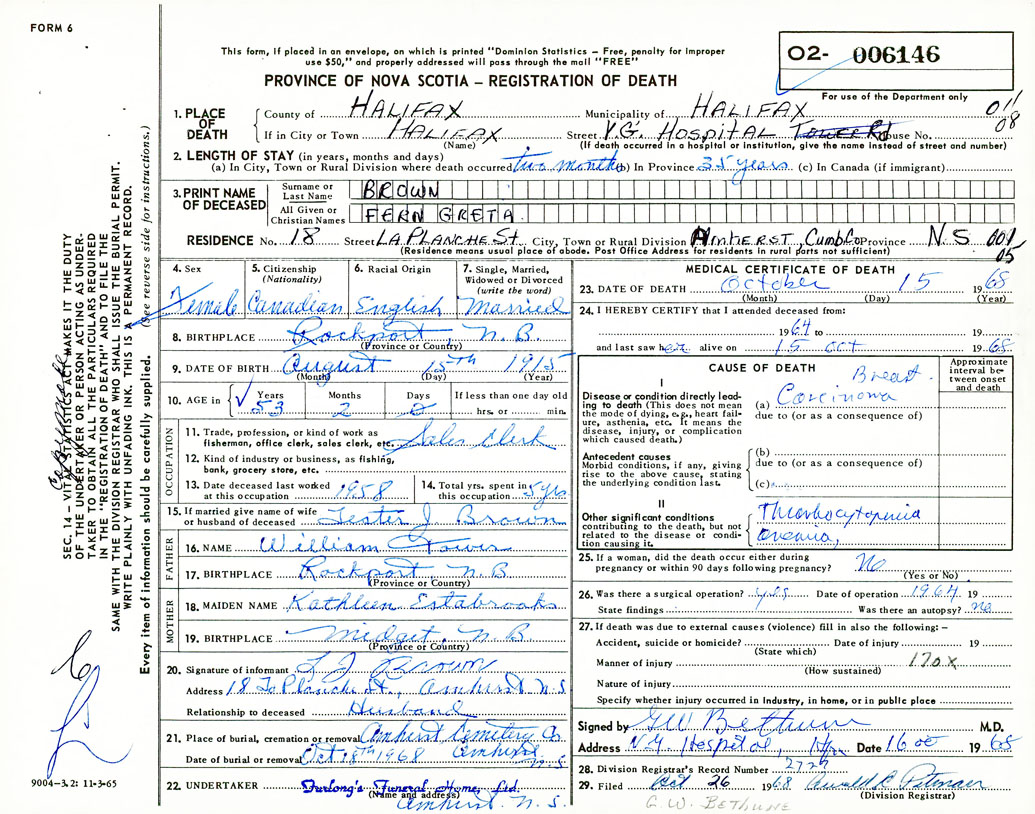 FORM 6
This form, if placed in an envelope, on which is printed "Dominion Statistics – Free, penalty for improper
use $50," and properly addressed will pass through the mail "FREE"
PROVINCE OF NOVA SCOTIA – REGISTRATION OF DEATH
02- 006146
For use of the Department only
011
08
1. PLACE OF DEATH
County of HALIFAX Municipality of HALIFAX
If in City or Town HALIFAX Street V.G. HOSPITAL TOWER Rd House No.
(Name) (If death occurred in a hospital or institution, give the name instead of street and number)
2. LENGTH OF STAY (in years, months and days)
(a) In City, Town or Rural Division where death occurred two months (b) In Province 35 years (c) In Canada (if immigrant)
3. PRINT NAME OF DECEASED
Surname or Last Name BROWN
All Given or Christian Names FERN GRETA
RESIDENCE No. 18 Street LA PLANCHE St. City, Town or Rural Division AMHERST, Cumb Co Province N.S 001
05
(Residence means usual place of abode. Post Office Address for residents in rural parts not sufficient)
4. Sex Female
5. Citizenship (Nationality) Canadian
6. Racial Origin English
7. Single, Married, Widowed or Divorced (write the word) Married
8. BIRTHPLACE Rockport, N.B.
(Province or Country)
9. DATE OF BIRTH August 15th 1915
(Month) (Day) (Year)
10. AGE in { Years 53 Months 2 Days 0 If less than one day old
hrs. or min.
OCCUPATION
11. Trade, profession, or kind of work as
fisherman, office clerk, sales clerk, etc. Sales Clerk
12. Kind of industry or business, as fishing,
bank, grocery store, etc.
13. Date deceased last worked at this occupation 1958
14. Total yrs. spent in this occupation 5 yrs
15. If married give name of wife
or husband of deceased Lester J Brown
FATHER
16. NAME William Tower
17. BIRTHPLACE Rockport N.B
(Province or Country)
MOTHER
18. MAIDEN NAME Kathleen Estabrooks
19. BIRTHPLACE Midget, N.B.
(Province or Country)
20. Signature of informant L J Brown
Address 18 La Planche St., Amherst N.S
Relationship to deceased Husband
21. Place of burial, cremation or removal Amherst Cemetery Co
Date of burial or removal Oct 18th 1968 Amherst N.S.
22. UNDERTAKER Furlong's Funeral Home, Ltd.
(Name and address)
Amherst, N.S.
MEDICAL CERTIFICATE OF DEATH
23. DATE OF DEATH October 15 1968
(Month) (Day) (Year)
24. I HEREBY CERTIFY that I attended deceased from:
1964 to 19
and last saw her alive on 15 Oct 1968
CAUSE OF DEATH
Approximate interval between onset and death
I
Disease or condition directly leading to death (This does not mean the mode of dying, e.g., heart failure, asthenia, etc. It means the disease, injury, or complication which caused death.)
Breast
(a) Carcinoma
due to (or as a consequence of)
Antecedent causes
Morbid conditions, if any, giving rise to the above cause, stating the underlying condition last.
(b)
due to (or as a consequence of)
(c)
II
Other significant conditions
contributing to the death, but not related to the disease or condition causing it.
Thrombocytopenia
anemia,
25. If a woman, did the death occur either during
pregnancy or within 90 days following pregnancy? No
(Yes or No)
26. Was there a surgical operation? yes Date of operation 1964 19
State findings Was there an autopsy? no
27. If death was due to external causes (violence) fill in also the following: –
Accident, suicide or homicide? Date of injury 19
(State which)
Manner of injury 170X
(How sustained)
Nature of injury
Specify whether injury occurred in industry, in home, or in public place
Signed by G W Bethune M.D.
Address V.G. Hospital, Hfx Date 16 Oct 1968
28. Division Registrar's Record Number 2727
29. Filed Oct 26 1968
(Division Registrar)
G. W. BETHUNE
SEC. 14 – VITAL STATISTICS ACT MAKES IT THE DUTY
OF THE UNDERTAKER OR PERSON ACTING AS UNDER-
TAKER TO OBTAIN ALL THE PARTICULARS REQUIRED
IN THE "REGISTRATION OF DEATH" AND TO FILE THE
SAME WITH THE DIVISION REGISTRAR WHO SHALL ISSUE THE BURIAL PERMIT.
WRITE PLAINLY WITH UNFADING INK. THIS IS A PERMANENT RECORD.
Every item of information should be carefully supplied. (See reverse side for instructions.)
9004–3.2: 11-3-65